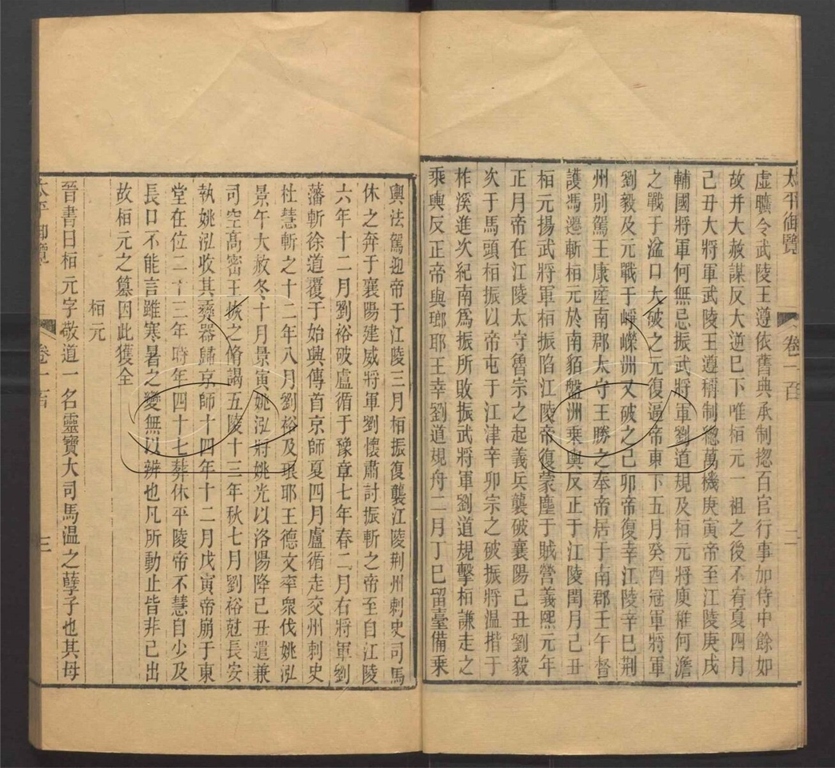 太平御覽
卷一百
二
虛曠令武陵王遵依舊典承制揔百官行事加侍中餘如
故并大赦謀反大逆巳下唯桓元一祖之後不宥夏四月
己丑大將軍武陵王遵稱制總萬機庚寅帝至江陵庚戌
輔國將軍何無忌振武將軍劉道規及桓元將庾稚何澹
之戰于湓口大破之元復逼帝東下五月癸酉冠軍將軍
劉毅及元戰于崢嶸洲又破之己卯帝復幸江陵辛巳荆
州別駕王康產南郡太守王騰之奉帝居于南郡壬午督
護馮遷斬桓元於南貊盤洲乘輿反正于江陵閏月己丑
桓元揚武將軍桓振陷江陵帝復蒙塵于賊營義熙元年
正月帝在江陵太守魯宗之起義兵襲破襄陽己丑劉毅
次于馬頭桓振以帝屯于江津辛卯宗之破振將溫楷于
柞溪進次紀南為振所敗振武將軍劉道規擊桓謙走之
乘輿反正帝與瑯耶王幸劉道規舟二月丁巳留臺備乘
輿法駕迎帝于江陵三月桓振復襲江陵荆州刺史司馬
休之奔于襄陽建威將軍劉懷肅討振斬之帝至自江陵
六年十二月劉裕破盧循于豫章七年春二月右將軍劉
藩斬徐道覆于始興傳首京師夏四月盧循走交州刺史
杜慧斬之十二年八月劉裕及琅耶王德文率衆伐姚泓
景午大赦冬十月景寅姚泓將姚光以洛陽降己丑遣兼
司空高密王恢之脩謁五陵十三年秋七月劉裕尅長安
執姚泓收其彝器歸京師十四年十二月戊寅帝崩于東
堂在位二十三年時年四十七葬休平陵帝不慧自少及
長口不能言雖寒暑之變無以辨也凡所動止皆非己出
故桓元之篡因此獲全
桓元
晉書曰桓元字敬道一名靈寶大司馬溫之孽子也其母
太平御覽
卷一百
三